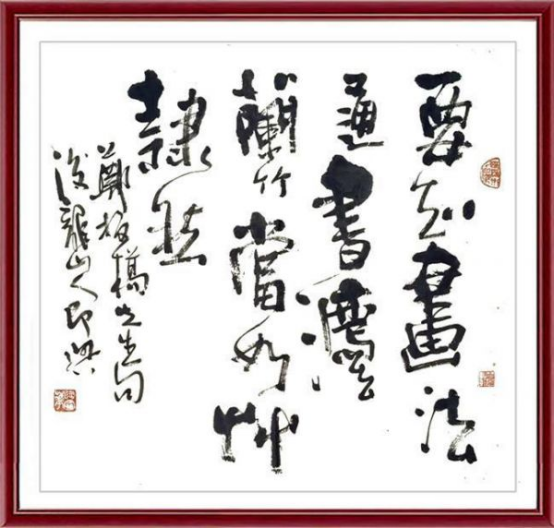 要知畫法
通書灋
蘭竹當如艸
隸然
鄭板橋先生句
龍山人即興